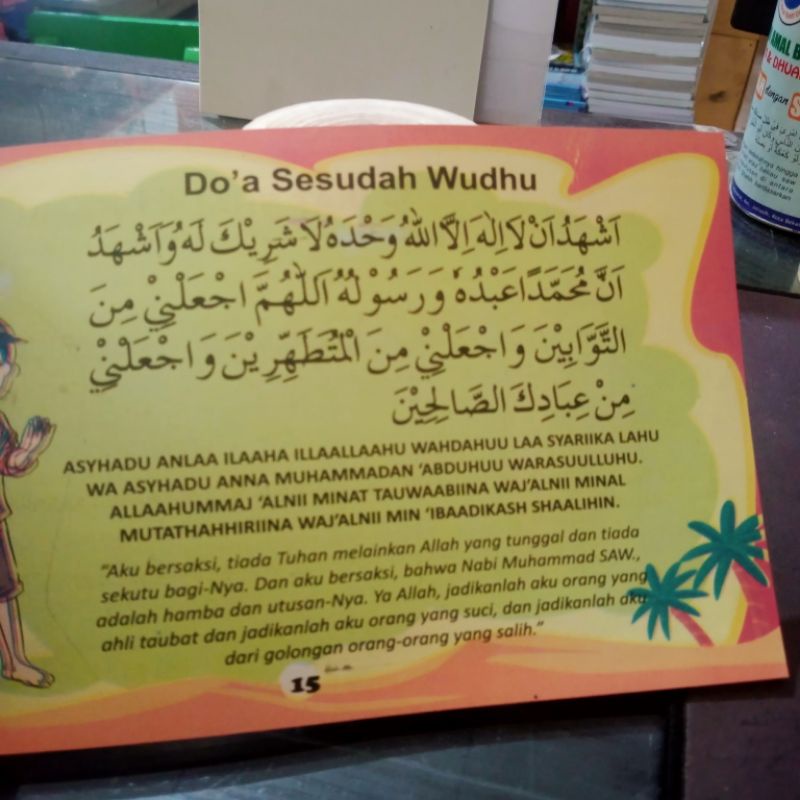 Do'a Sesudah Wudhu
اَشْهَدُ اَنْ لَا اِلٰهَ اِلَّا اللّٰهُ وَحْدَهُ لَا شَرِيْكَ لَهُ وَاَشْهَدُ
اَنَّ مُحَمَّدًا عَبْدُهُ وَرَسُوْلُهُ اَللّٰهُمَّ اجْعَلْنِيْ مِنَ
التَّوَّابِيْنَ وَاجْعَلْنِيْ مِنَ الْمُتَطَهِّرِيْنَ وَاجْعَلْنِيْ
مِنْ عِبَادِكَ الصَّالِحِيْنَ
ASYHADU ANLAA ILAAHA ILLAALLAAHU WAHDAHUU LAA SYARIIKA LAHU
WA ASYHADU ANNA MUHAMMADAN 'ABDUHUU WARASUULLUHU.
ALLAAHUMMAJ 'ALNII MINAT TAUWAABIINA WAJ'ALNII MINAL
MUTATHAHHIRIINA WAJ'ALNII MIN 'IBAADIKASH SHAALIHIN.
"Aku bersaksi, tiada Tuhan melainkan Allah yang tunggal dan tiada
sekutu bagi-Nya. Dan aku bersaksi, bahwa Nabi Muhammad SAW.,
adalah hamba dan utusan-Nya. Ya Allah, jadikanlah aku orang yang
ahli taubat dan jadikanlah aku orang yang suci, dan jadikanlah aku
dari golongan orang-orang yang salih."
15
AMAL
& DHUA
dengan